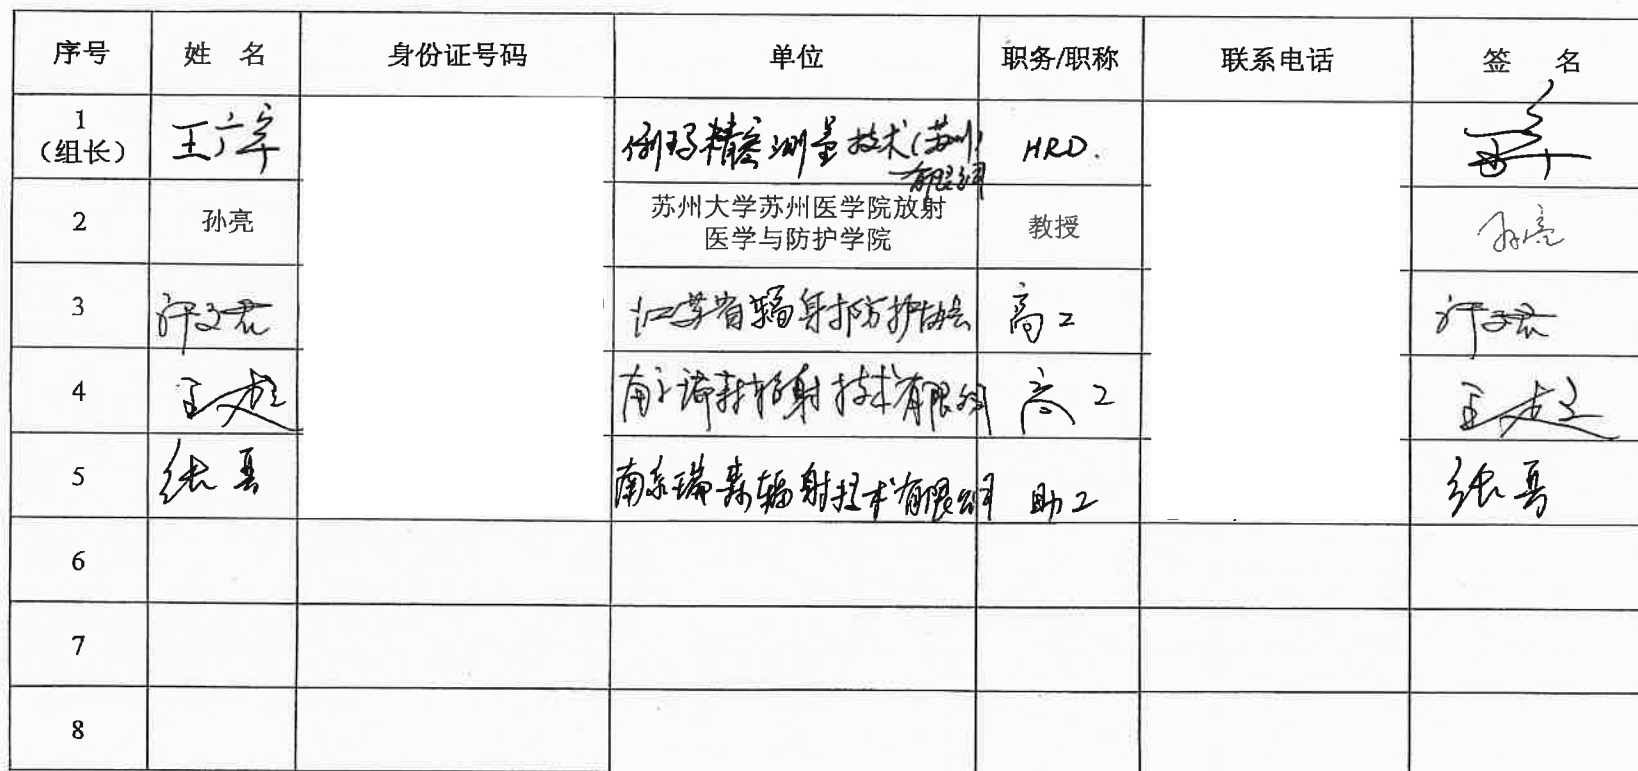 序号 姓 名 身份证号码 单位 职务/职称 联系电话 签 名
1
（组长）
王广军
精密测量技术(苏州)
有限公司
HRD.
2 孙亮
苏州大学苏州医学院放射
医学与防护学院
教授 孙亮
3 许文君 江苏省辐射防护协会 高工 许文君
4 王超 南京瑞森辐射技术有限公司 高工 王超
5 张勇 南京瑞森辐射技术有限公司 助工 张勇
6
7
8